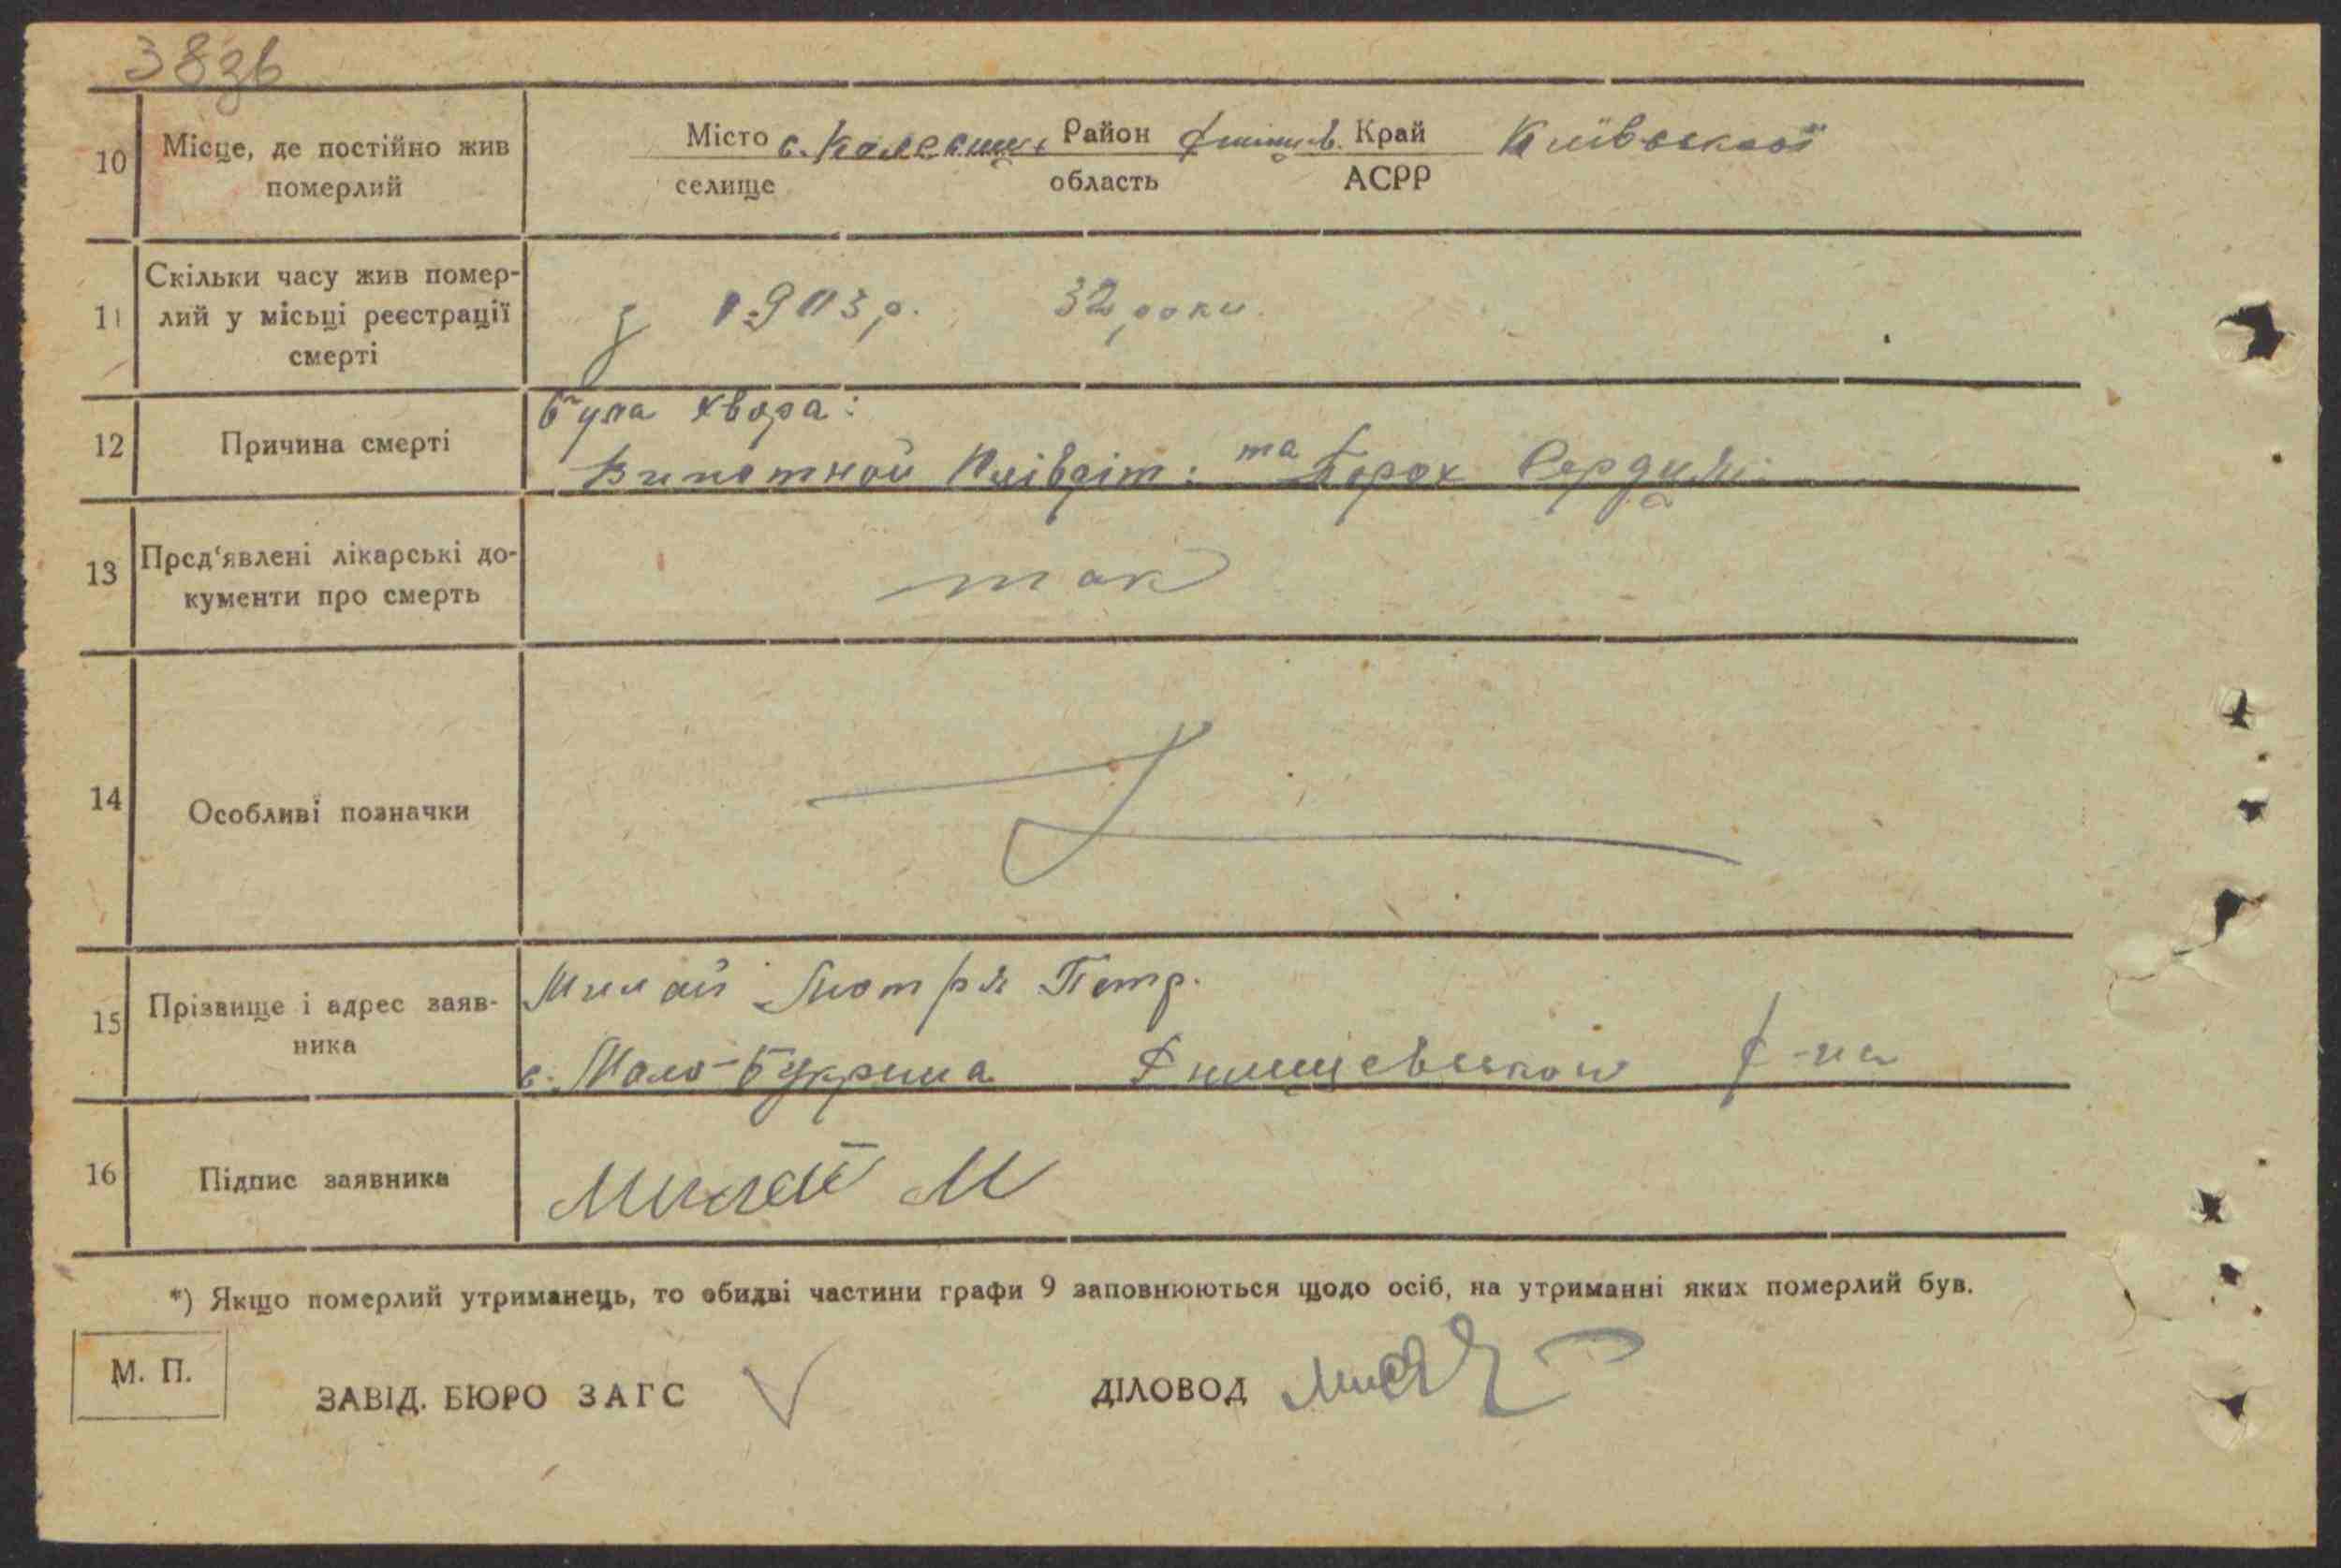 38зв
10 Місце, де постійно жив померлий
Місто Район Край Київської
селище область АСРР
11 Скільки часу жив помер-
лий у місьці реєстрації
смерті
з 1903 р. 32 роки.
12 Причина смерті
була хвора:
та Порок
13 Пред‘явлені лікарські до-
кументи про смерть
так
14 Особливі позначки
15 Прізвище і адрес заяв-
ника
Милай Петр.
с. Мало-Букрина р-на
16 Підпис заявника
Милай М
*) Якщо померлий утриманець, то обидві частини графи 9 заповнюються щодо осіб, на утриманні яких померлий був.
М. П.
ЗАВІД. БЮРО ЗАГС
ДІЛОВОД